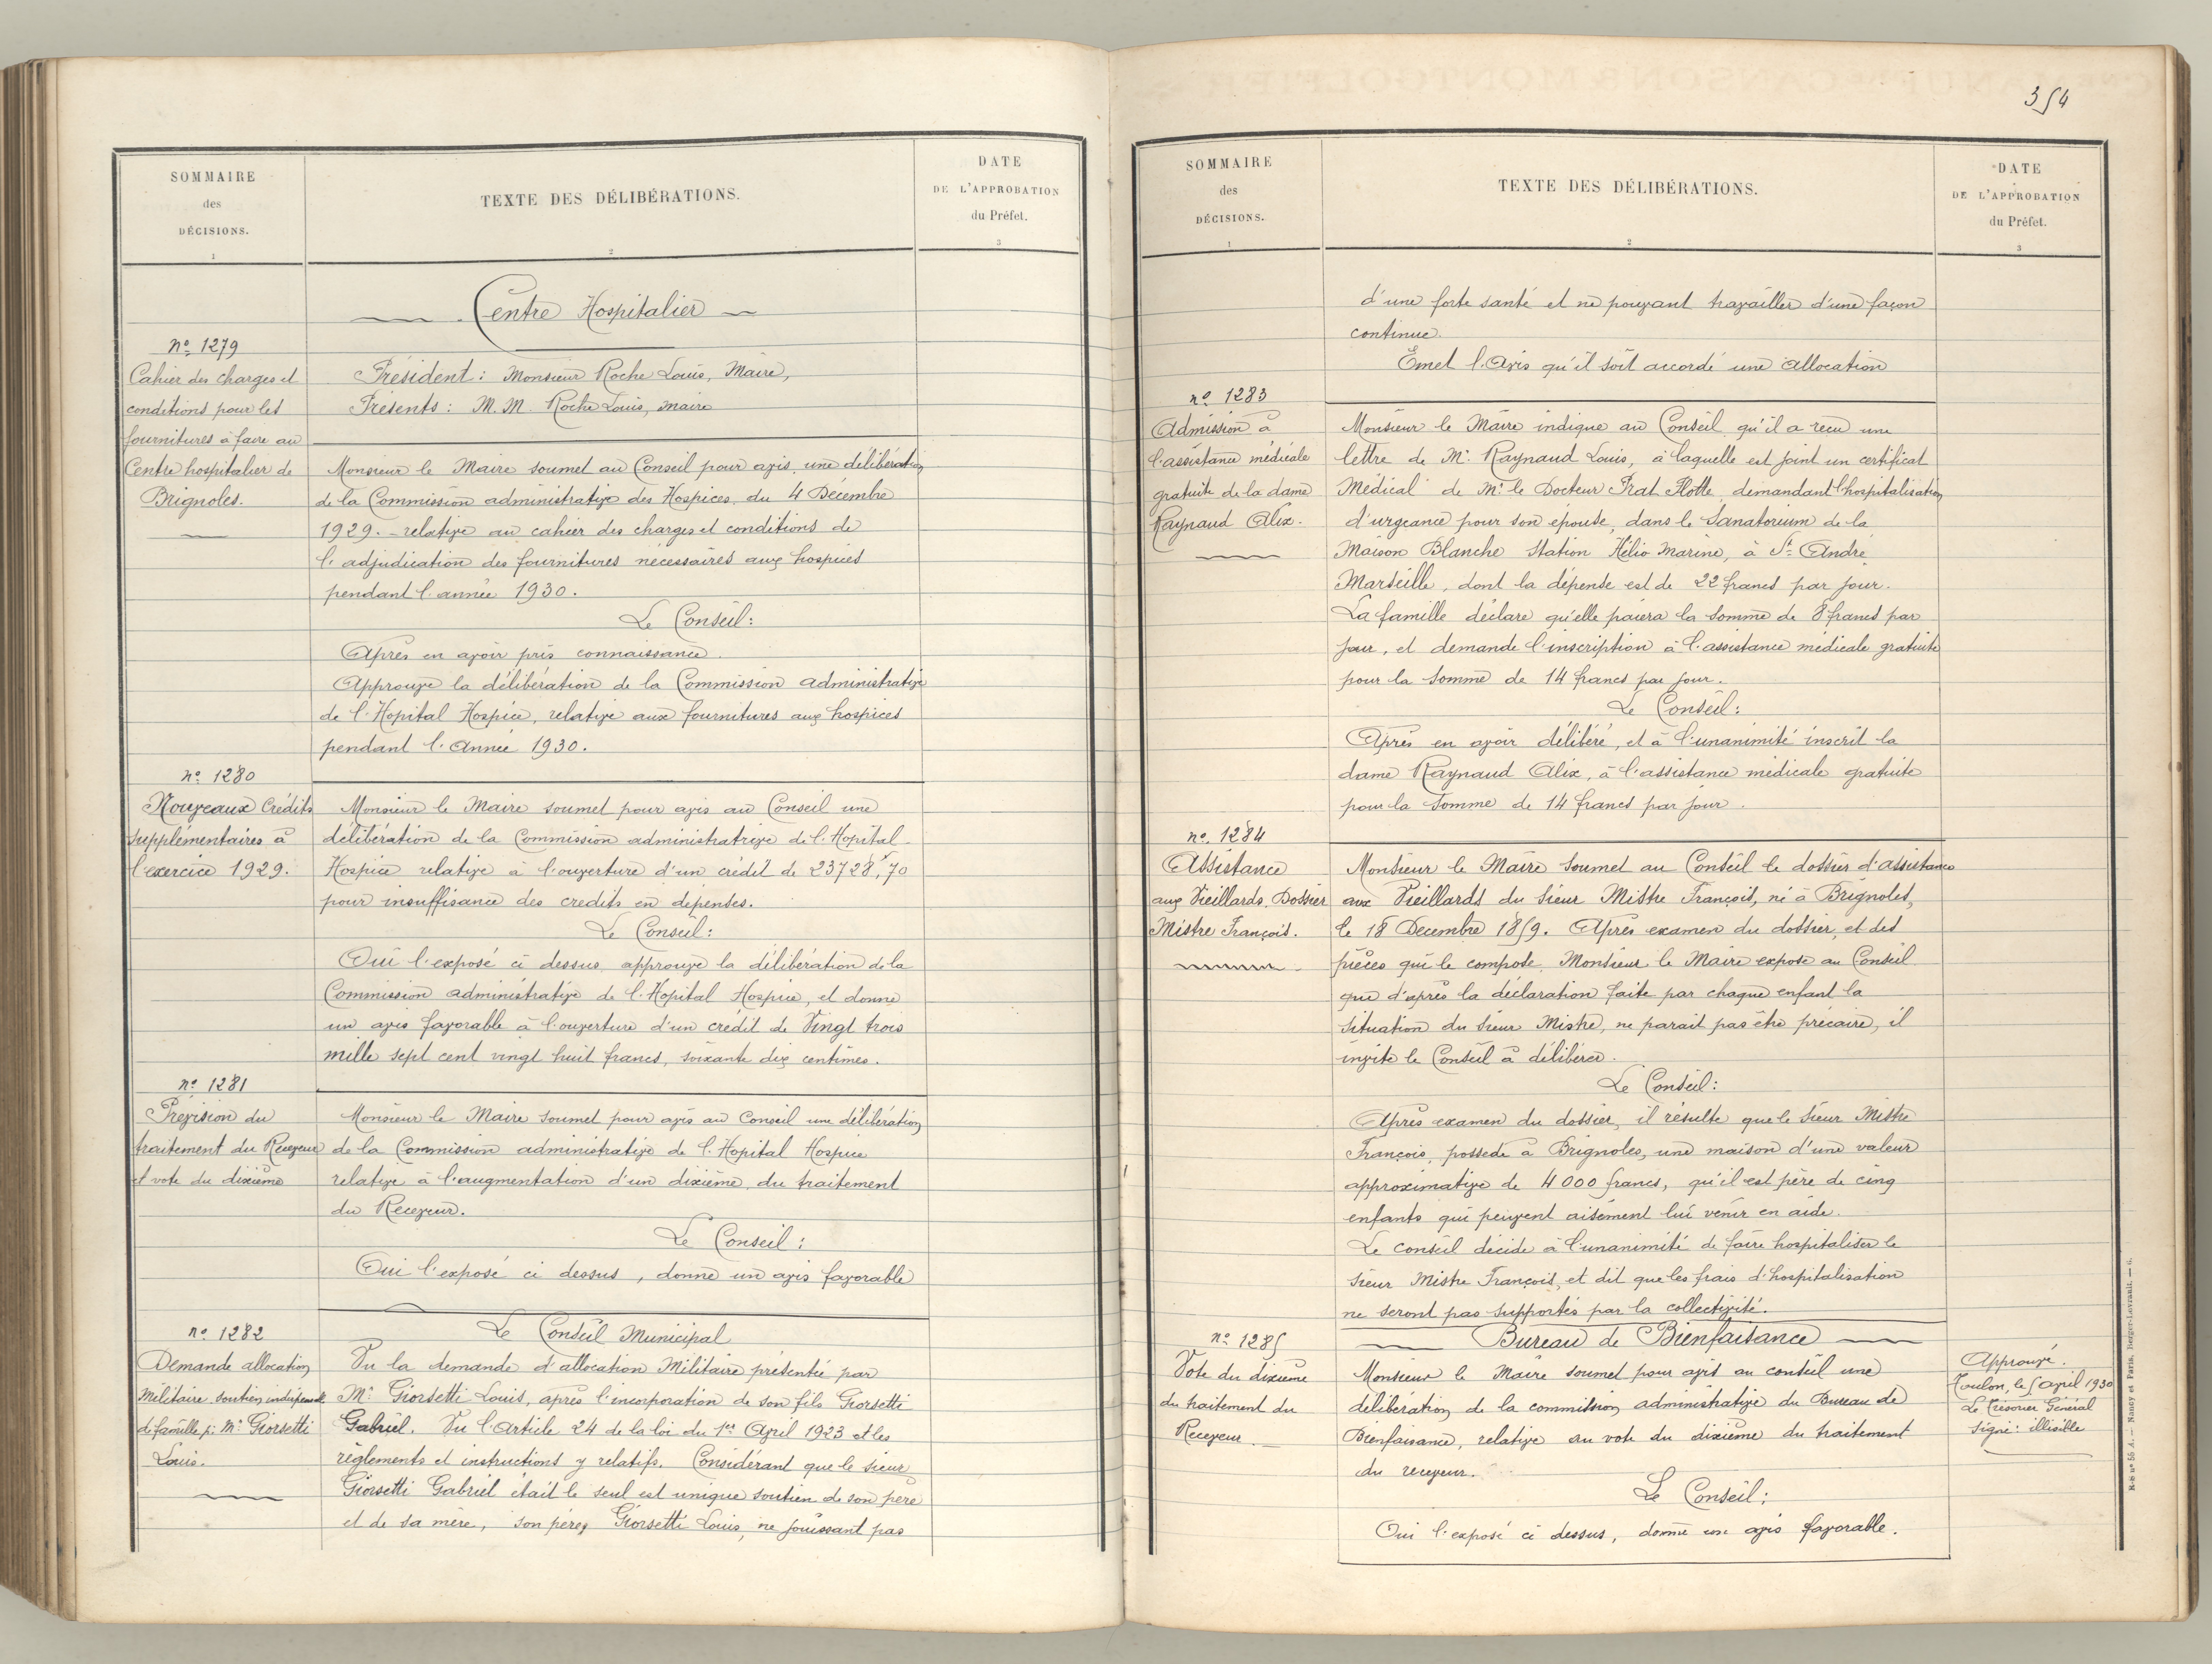 SOMMAIRE
des
DÉCISIONS.
1
TEXTE DES DÉLIBÉRATIONS.
2
DATE
DE L'APPROBATION
du Préfet.
3
Centre Hospitalier
nº 1279
Cahier des charges et
conditions pour les
fournitures à faire au
Centre hospitalier de
Brignoles.
Président : Monsieur Roche Louis, Maire,
Présents : M.M. Roche Louis, maire
Monsieur le Maire soumet au Conseil pour avis une délibération
de la Commission administrative des Hospices du 4 Décembre
1929. relative au cahier des charges et conditions de
l'adjudication des fournitures nécessaires aux hospices
pendant l'année 1930.
Le Conseil :
Après en avoir pris connaissance.
Approuve la délibération de la Commission administrative
de l'Hopital Hospice, relative aux fournitures aux hospices
pendant l'Année 1930.
nº 1280
Nouveaux Crédits
supplémentaires à
l'exercice 1929.
Monsieur le Maire soumet pour avis au Conseil une
délibération de la Commission administratrive de l'Hopital
Hospice relative à l'ouverture d'un crédit de 23728f,70
pour insuffisance des credits en dépenses.
Le Conseil :
Oui l'exposé ci dessus approuve la délibération de la
Commission administrative de l'Hopital Hospice, et donne
un avis favorable à l'ouverture d'un crédit de Vingt trois
mille sept cent vingt huit francs, soixante dix centimes.
nº 1281
Prévision du
traitement du Receveur
et vote du dixième
Monsieur le Maire soumet pour avis au Conseil une délibération
de la Commission administrative de l'Hopital Hospice
relative à l'augmentation d'un dixième du traitement
du Receveur.
Le Conseil :
Oui l'exposé ci dessus, donne un avis favorable
nº 1282
Demande allocation
Militaire soutien indispensable
de famille p: Mr Giorsetti
Louis.
Le Conseil Municipal
Vu la demande d'allocation Militaire présentée par
Mr Giorsetti Louis, après l'incorporation de son fils Giorsetti
Gabriel. Vu l'Article 24 de la loi du 1er Avril 1923 et les
règlements et instructions y relatifs. Considérant que le sieur
Giorsetti Gabriel était le seul est unique soutien de son père
et de sa mère, son père, Giorsetti Louis, ne jouissant pas
354
SOMMAIRE
des
DÉCISIONS.
1
TEXTE DES DÉLIBÉRATIONS.
2
DATE
DE L'APPROBATION
du Préfet.
3
d'une forte santé et ne pouvant travailler d'une façon
continue.
Emet l'Avis qu'il soit accordé une allocation
nº 1283
Admission à
l'assistance médicale
gratuite de la dame
Raynaud Alix.
Monsieur le Maire indique au Conseil qu'il a reçu une
lettre de Mr Raynaud Louis, à laquelle est joint un certificat
Médical de Mr le Docteur Prat Flotte, demandant l'hospitalisation
d'urgeance pour son épouse, dans le Sanatorium de la
Maison Blanche Station Hélio Marine, à St André
Marseille, dont la dépense est de 22 francs par jour.
La famille déclare qu'elle paiera la somme de 8 francs par
jour, et demande l'inscription à l'assistance médicale gratuite
pour la somme de 14 francs par jour.
Le Conseil :
Après en avoir délibéré, et à l'unanimité inscrit la
dame Raynaud Alix, à l'assistance médicale gratuite
pour la somme de 14 francs par jour.
nº 1284
Assistance
aux Vieillards. Dossier
Mistre François.
Monsieur le Maire soumet au Conseil le dossier d'assistance
aux Vieillards du sieur Mistre François, né à Brignoles,
le 18 Decembre 1859. Après examen du dossier, et des
pièces qui le compose, Monsieur le Maire expose au Conseil
que d'après la déclaration faite par chaque enfant la
situation du sieur Mistre, ne parait pas être précaire, il
invite le Conseil à délibérer.
Le Conseil :
Après examen du dossier, il résulte que le sieur Mistre
François, possede à Brignoles, une maison d'une valeur
approximative de 4000 francs, qu'il est père de cinq
enfants qui peuvent aisément lui venir en aide.
Le conseil décide à l'unanimité de faire hospitaliser le
sieur Mistre François, et dit que les frais d'hospitalisation
ne seront pas supportés par la collectivité.
nº 1285
Vote du dixième
du traitement du
Receveur
Bureau de Bienfaisance
Monsieur le Maire soumet pour avis au conseil une
délibération de la commission administrative du Bureau de
Bienfaisance, relative au vote du dixième du traitement
du receveur.
Le Conseil :
Oui l'exposé ci dessus, donne un avis favorable.
Approuvé.
Toulon, le 5 avril 1930
Le Trésorier Général
Signé : illisible
N-S nº 55 A. — Nancy et Paris, Berger-Levrault. — 6.